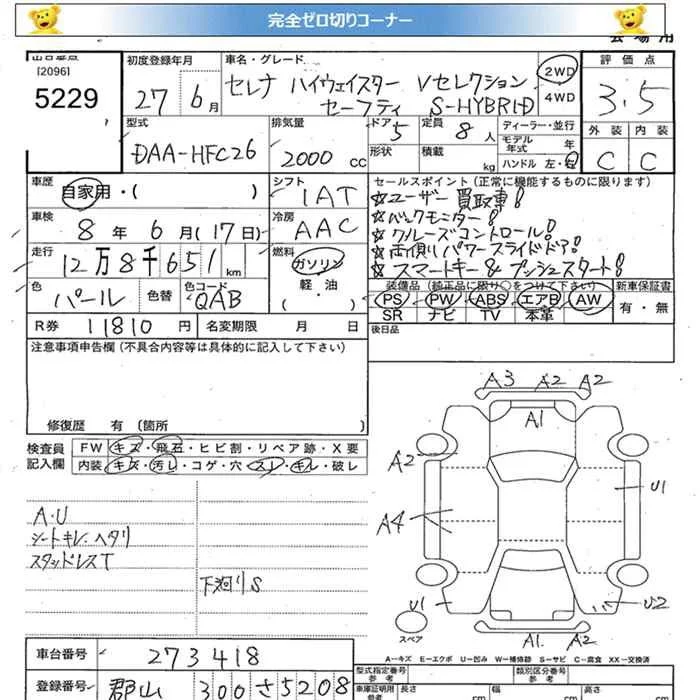 完全ゼロ切りコーナー
[2096]
5229
初度登録年月
27 6月
車名・グレード
セレナ ハイウェイスター Vセレクション
セーフティ S-HYBRID
2WD
4WD
評価点
3.5
外装 内装
C C
型式
DAA-HFC26
排気量
2000 CC
ドア 5
形状
定員 8人
積載 kg
ディーラー・並行
モデル年式 年
ハンドル 左・右
車歴
自家用・( )
シフト
IAT
セールスポイント (正常に機能するものに限ります)
☆ユーザー買取車!
☆バックモニター!
☆クルーズコントロール!
☆両側パワースライドドア!
☆スマートキー&プッシュスタート!
車検
8年 6月(17日)
冷房
AAC
走行
12万8千651km
燃料
ガソリン
軽・油
( )
色
パール
色替
色コード
QAB
装備品 (純正品に限り○をつけて下さい)
PS PW ABS エアB AW
SR ナビ TV 本革
新車保証書
有・無
R券 11810円
名変期限 月 日
後日品
注意事項申告欄 (不具合内容等は具体的に記入して下さい)
修復歴 有 (箇所 )
検査員
記入欄
FW キズ・飛石・ヒビ割・リペア跡・X要
内装 キズ・汚レ・コゲ・穴・スレ・キレ・破レ
A・U
シートキレ、ヘタリ
スタッドレスT
下廻りS
A3 A2 A2
A1
A2
U1
A4
U1
U2
A1 A2
スペア
A-キズ E-エクボ U-凹み W-補修跡 S-サビ C-腐食 XX-交換済
車台番号
273418
登録番号
郡山 300 さ 5208
型式指定番号
類別区分番号
車庫証明用
参考
長さ cm
幅 cm
高さ cm